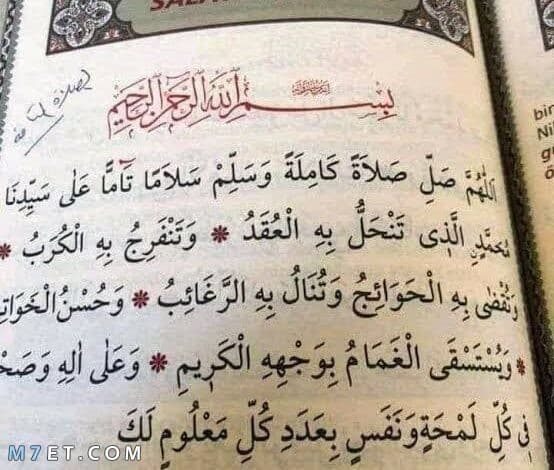 بِسْمِ اللهِ الرَّحْمٰنِ الرَّحِيمِ
اَللّٰهُمَّ صَلِّ صَلاَةً كَامِلَةً وَسَلِّمْ سَلاَمًا تَآمًّا عَلٰى سَيِّدِنَا
مُحَمَّدٍ الَّذِى تَنْحَلُّ بِهِ الْعُقَدُ * وَتَنْفَرِجُ بِهِ الْكُرَبُ *
وَتُقْضٰى بِهِ الْحَوَائِجُ وَتُنَالُ بِهِ الرَّغَائِبُ * وَحُسْنُ الْخَوَات
* وَيُسْتَسْقَى الْغَمَامُ بِوَجْهِهِ الْكَرِيمِ * وَعَلٰى اٰلِهِ وَصَحْ
فِى كُلِّ لَمْحَةٍ وَنَفَسٍ بِعَدَدِ كُلِّ مَعْلُومٍ لَكَ
M7ET.COM